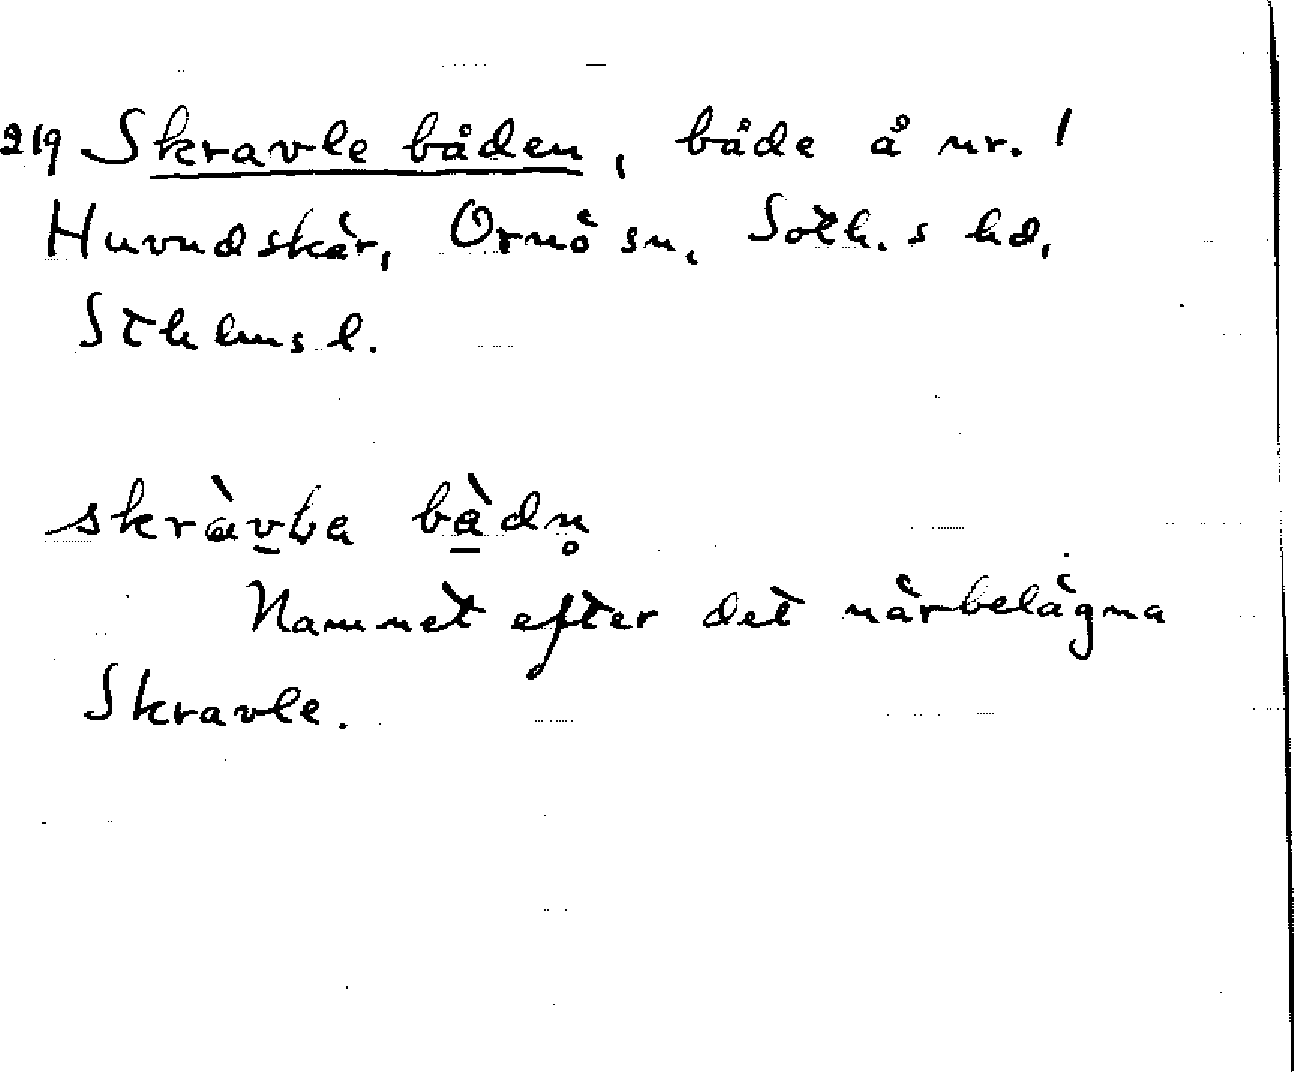 219 Skravle båden, både å nr. 1
Huvudskär, Ornö sn, Soth.s hd,
Sthlms l.
skràvla bàdn̥
Namnet efter det närbelägna
Skravle.